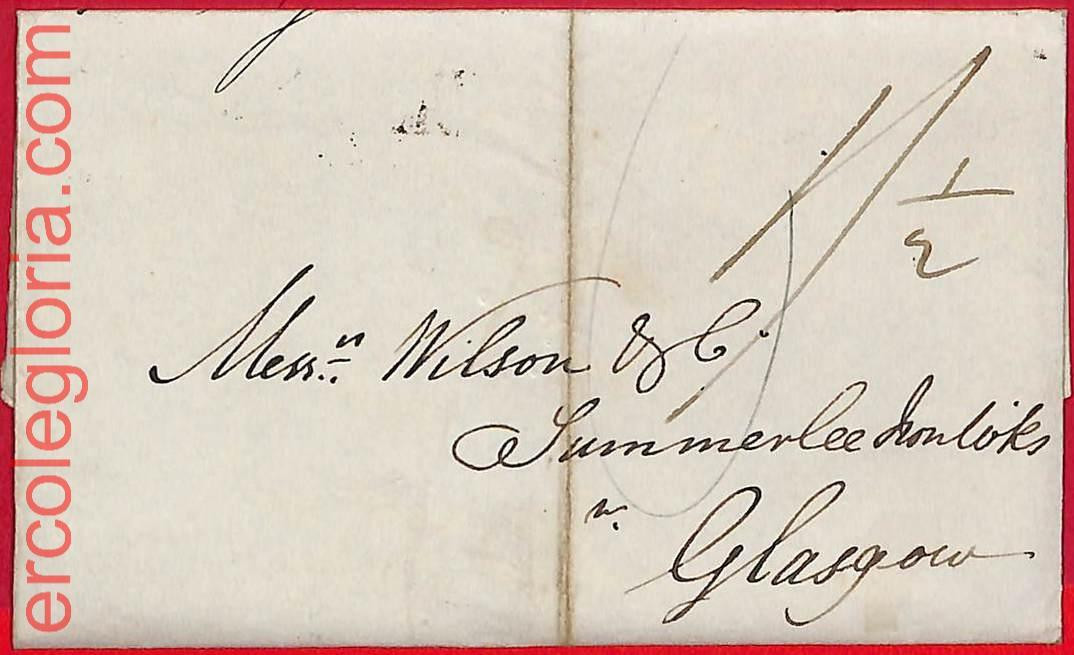 ercolegloria.com
1/1 1/2
Messrs. Wilson & Co.
Summerlee Iron Works
nr.
Glasgow